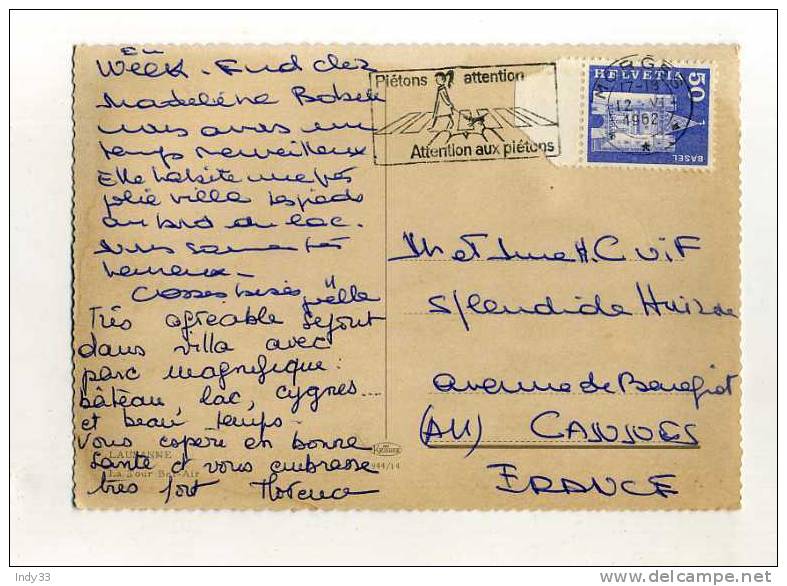 En
Week-End chez
Madeleine
nous avons un
temps merveilleux
Elle habite une très
jolie villa les pieds
au bord du lac.
nous sommes très
heureux -
Grosses bises Joëlle
Très agréable séjour
dans villa avec
parc magnifique :
bâteau, lac, cygnes ...
et beau temps -
Vous espère en bonne
santé et vous embrasse
très fort Florence
LAUSANNE
La Tour Bel-Air
944/14
Piétons attention
Attention aux piétons
MORGES
12 VI
1962
HELVETIA
50
BASEL
M et Mme H. CUIF
Splendide
avenue de
(AM) CANNES
FRANCE
Indy33
www.delcampe.net